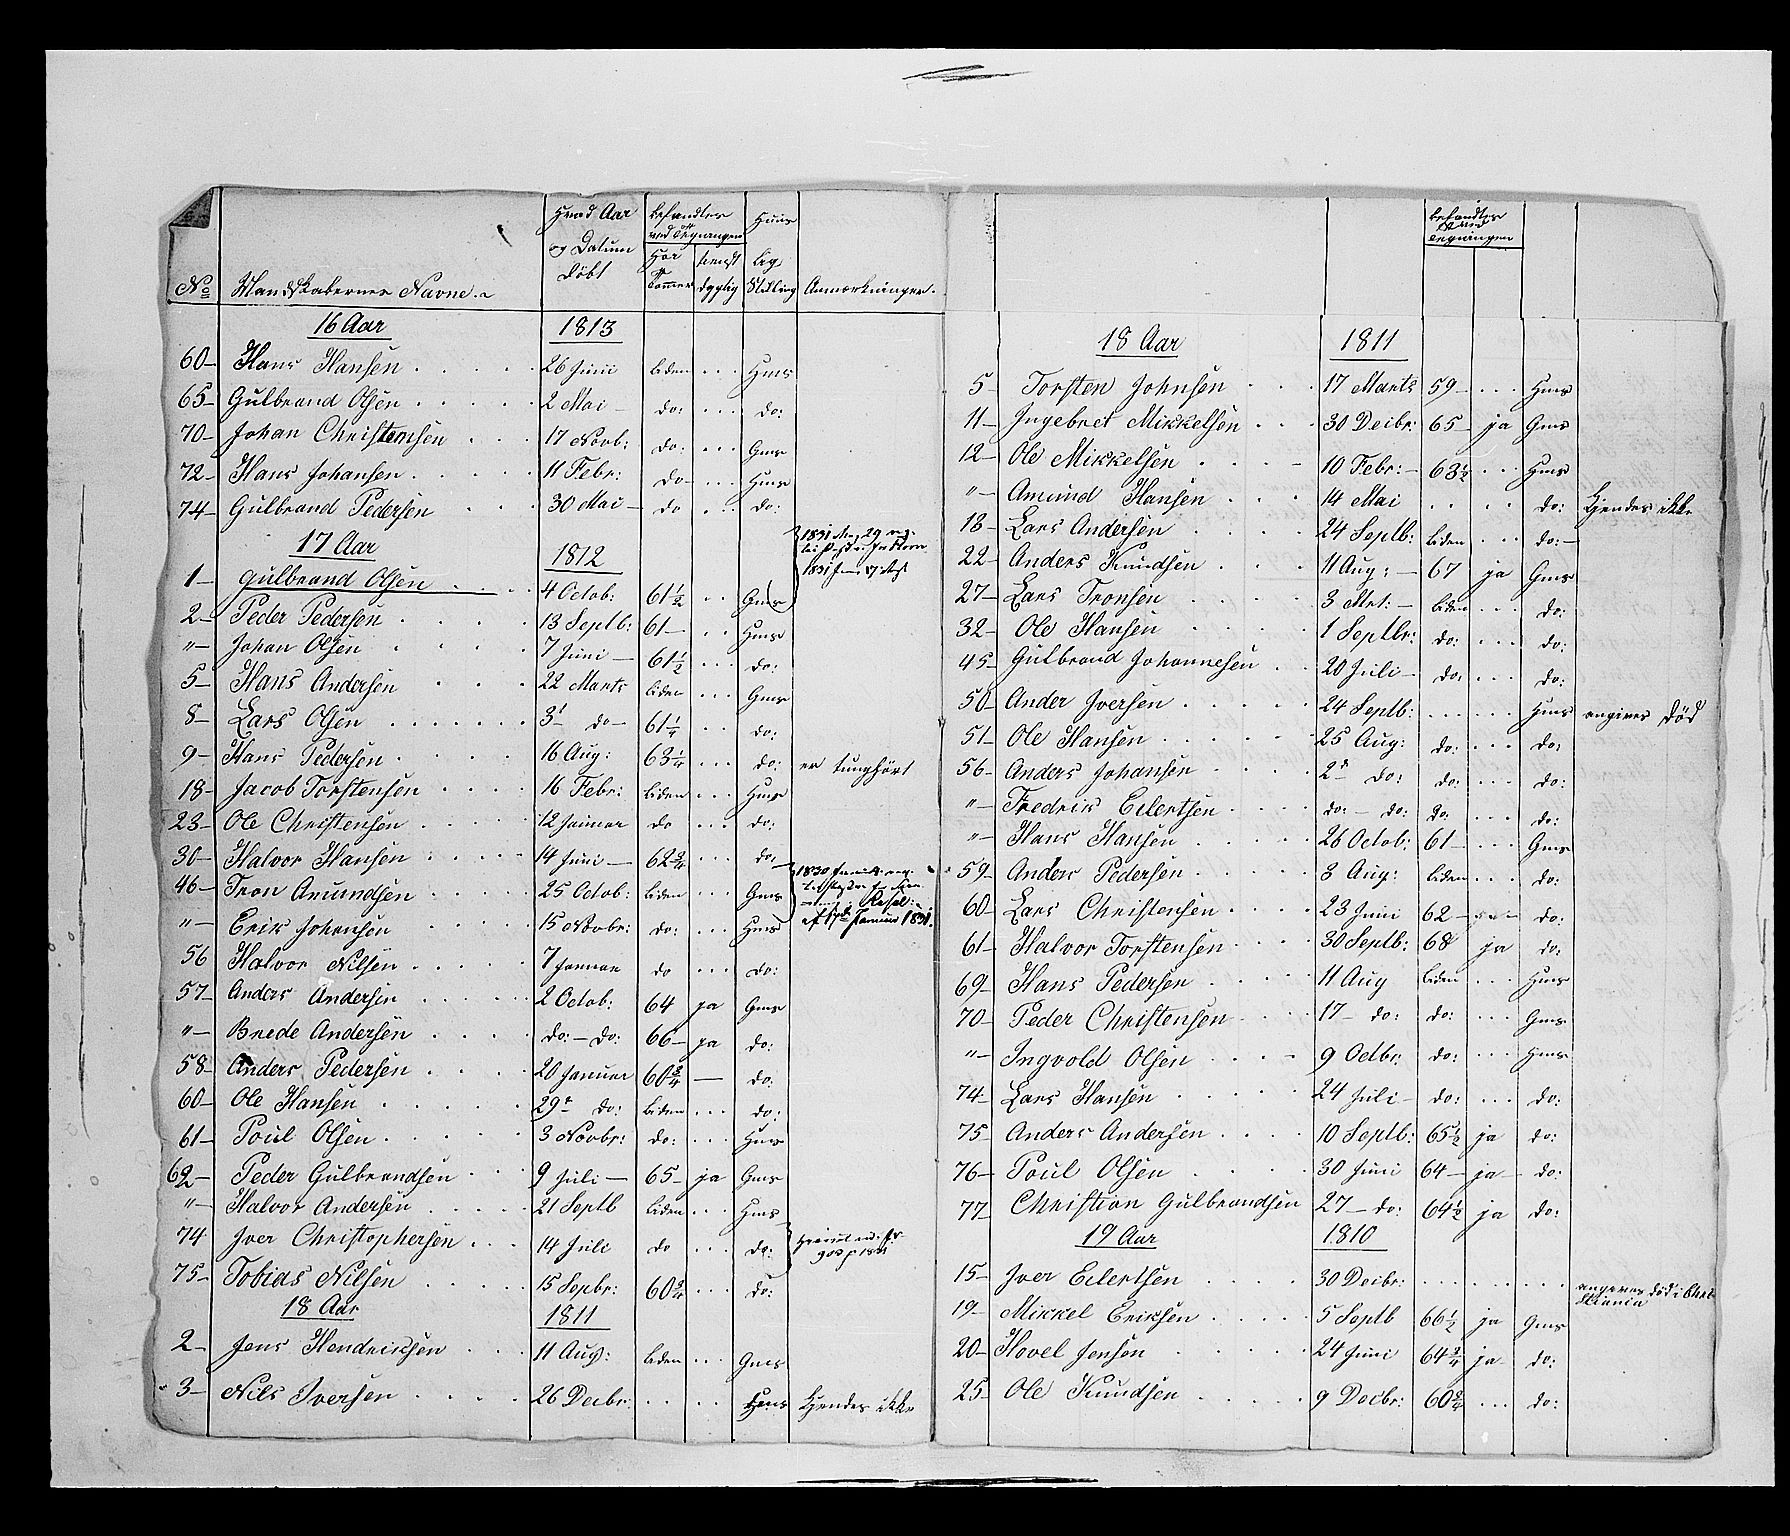 No Mandskabernes Navne. Hvad Aar og Datum døbt | befandtes ved Tegningen Høi Tommer | tienst dygtig | Huus lig Stilling | Anmærkninger.
16 Aar 1813
60 Hans Hansen 26 Juni liden Hms
65 Gulbrand Olsen 2 Mai do: do:
70 Johan Christensen 17 Novb: do: Gms
72 Hans Johansen 11 Febr: do Hms
74 Gulbrand Pedersen 30 Mai do do:
17 Aar 1812
1 Gulbrand Olsen 4 Octob: 61½ Gms
2 Peder Pedersen 13 Septb: 61 Hms
"– Johan Olsen 7 Juni 61½ do:
5 Hans Andersen 22 Marts liden Gms
8 Lars Olsen 31 do 61¼ do:
9 Hans Pedersen 16 Aug: 63¼ do: er tunghørt
18 Jacob Torstensen 16 Febr: liden Hms
23 Ole Christensen 12 Januar do do:
30 Halvor Hansen 14 Juni 62¾ do:
46 Tron Amundsen 25 Octob: liden Gms
"– Erik Johansen 15 Novbr: do: Hms
56 Halvor Nilsen 7 Januar do do:
57 Anders Andersen 2 Octob: 64 ja Gms
"– Brede Andersen do: – do: 66 ja do:
58 Anders Pedersen 20 Januar 60¾ — do:
60 Ole Hansen 29 do: liden do:
61 Poul Olsen 3 Novbr: do: Hms
62 Peder Gulbrandsen 9 Juli 65 ja Gms
"– Halvor Andersen 21 Septb liden Hms
74 Iver Christophersen 14 Juli do do:
75 Tobias Nilsen 15 Sepbr: 60¾ do:
18 Aar 1811
2 Jens Hendriksen 11 Aug: liden Gms
3 Nils Iversen 26 Decbr: Hms Kjendes ikke
befandtes ved Tegningen
18 Aar 1811
5 Torsten Johnsen 17 Marts 59 Hms
11 Ingebret Mikkelsen 30 Decbr: 65 ja Gms
12 Ole Mikkelsen 10 Febr: 63½ Hms
"– Amund Hansen 14 Mai do: Kjendes ikke
18 Lars Andersen 24 Septb: liden do:
22 Anders Knudsen 11 Aug: 67 ja Gms
27 Lars Tronsen 3 Mrt: liden do:
32 Ole Hansen 1 Septbr: do: do:
45 Gulbrand Johannesen 20 Juli do: do:
50 Ander Iversen 24 Septb: Hms angives død
51 Ole Hansen 25 Aug: do: do:
56 Anders Johansen 2 do: do: do:
"– Fredrik Eilertsen do: – do: do: do:
"– Hans Hansen 26 Octob: 61 Gms
59 Anders Pedersen 8 Aug: liden do:
60 Lars Christensen 23 Juni 62 do:
61 Halvor Torstensen 30 Septb: 68 ja do:
69 Hans Pedersen 11 Aug liden Hms
70 Peder Christensen 17 do: do: Gms
"– Ingvold Olsen 9 Octbr: do: Hms
74 Lars Hansen 24 Juli do: do:
75 Anders Andersen 10 Septb: 65½ ja do:
76 Poul Olsen 30 Juni 64 ja do:
77 Christian Gulbrandsen 27 do: 64½ ja do:
19 Aar 1810
15 Iver Eilertsen 30 Decbr: angives død i Christiania
19 Mikkel Eriksen 5 Septb 66½ ja Gms
20 Hovel Jensen 24 Juni 64¾ ja do:
25 Ole Knudsen 9 Decbr: 60¾ do: